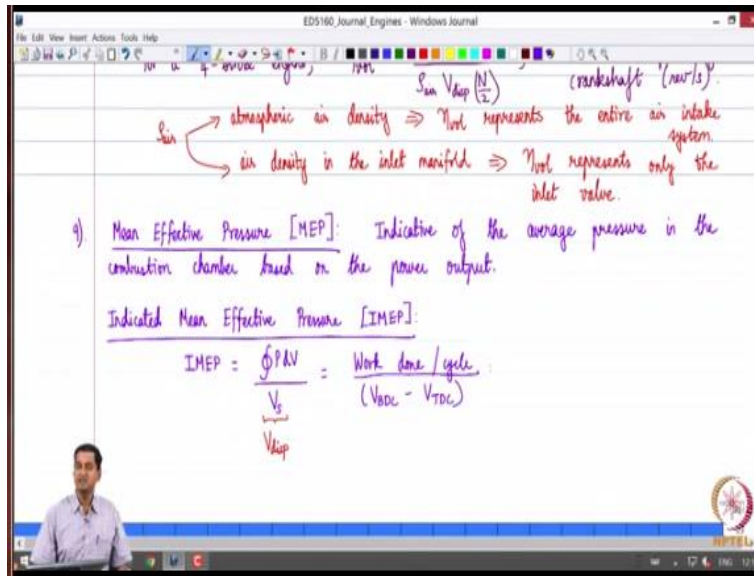 ED5160_Journal_Engines - Windows Journal
File Edit View Insert Actions Tools Help
for a 4-stroke engine, ηvol = / ρair Vdisp (N/2) , crankshaft (rev/s).
ρair → atmospheric air density ⇒ ηvol represents the entire air intake system.
→ air density in the inlet manifold ⇒ ηvol represents only the inlet valve.
9). Mean Effective Pressure [MEP]: Indicative of the average pressure in the
combustion chamber based on the power output.
Indicated Mean Effective Pressure [IMEP]:
IMEP = ∮PdV / Vs = Work done / cycle / (VBDC - VTDC)
Vdisp
NPTEL